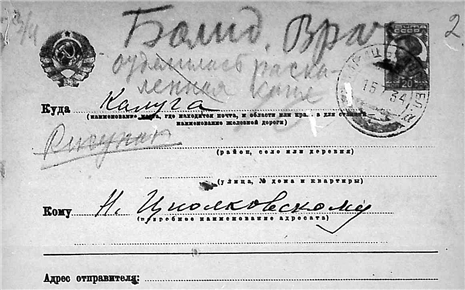 Болид. Врач
2
отделилась раска-
ленная капля
Куда Калуга
(наименование места, где находится почта, и области или края, а для станций
наименование железной дороги)
Рисунок
(район, село или деревня)
(улица, № дома и квартиры)
Кому Н. Циолковскому
(подробное наименование адресата)
Адрес отправителя: